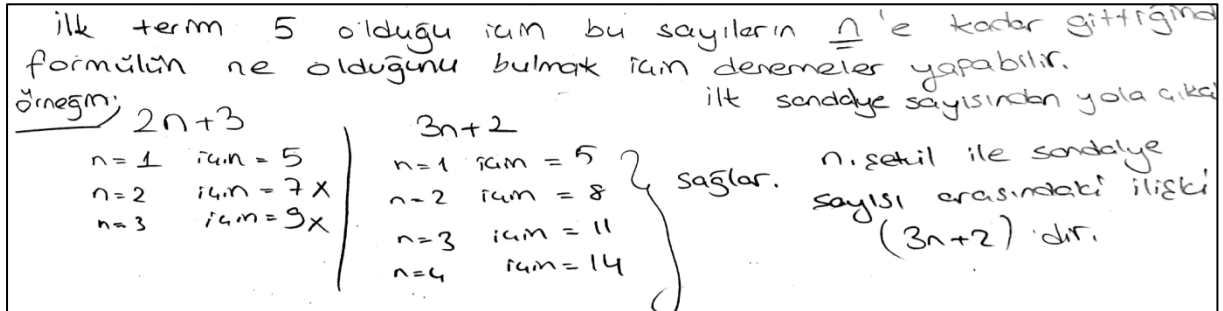 ilk term 5 olduğu için bu sayıların n'e kadar gittiğinde
formülün ne olduğunu bulmak için denemeler yapabilir.
örneğin; ilk sandalye sayısından yola çıka
2n+3
n = 1 için = 5
n = 2 için = 7 x
n = 3 için = 9 x
3n+2
n = 1 için = 5
n = 2 için = 8
n = 3 için = 11
n = 4 için = 14
sağlar.
n. şekil ile sandalye
sayısı arasındaki ilişki
(3n+2) dir.